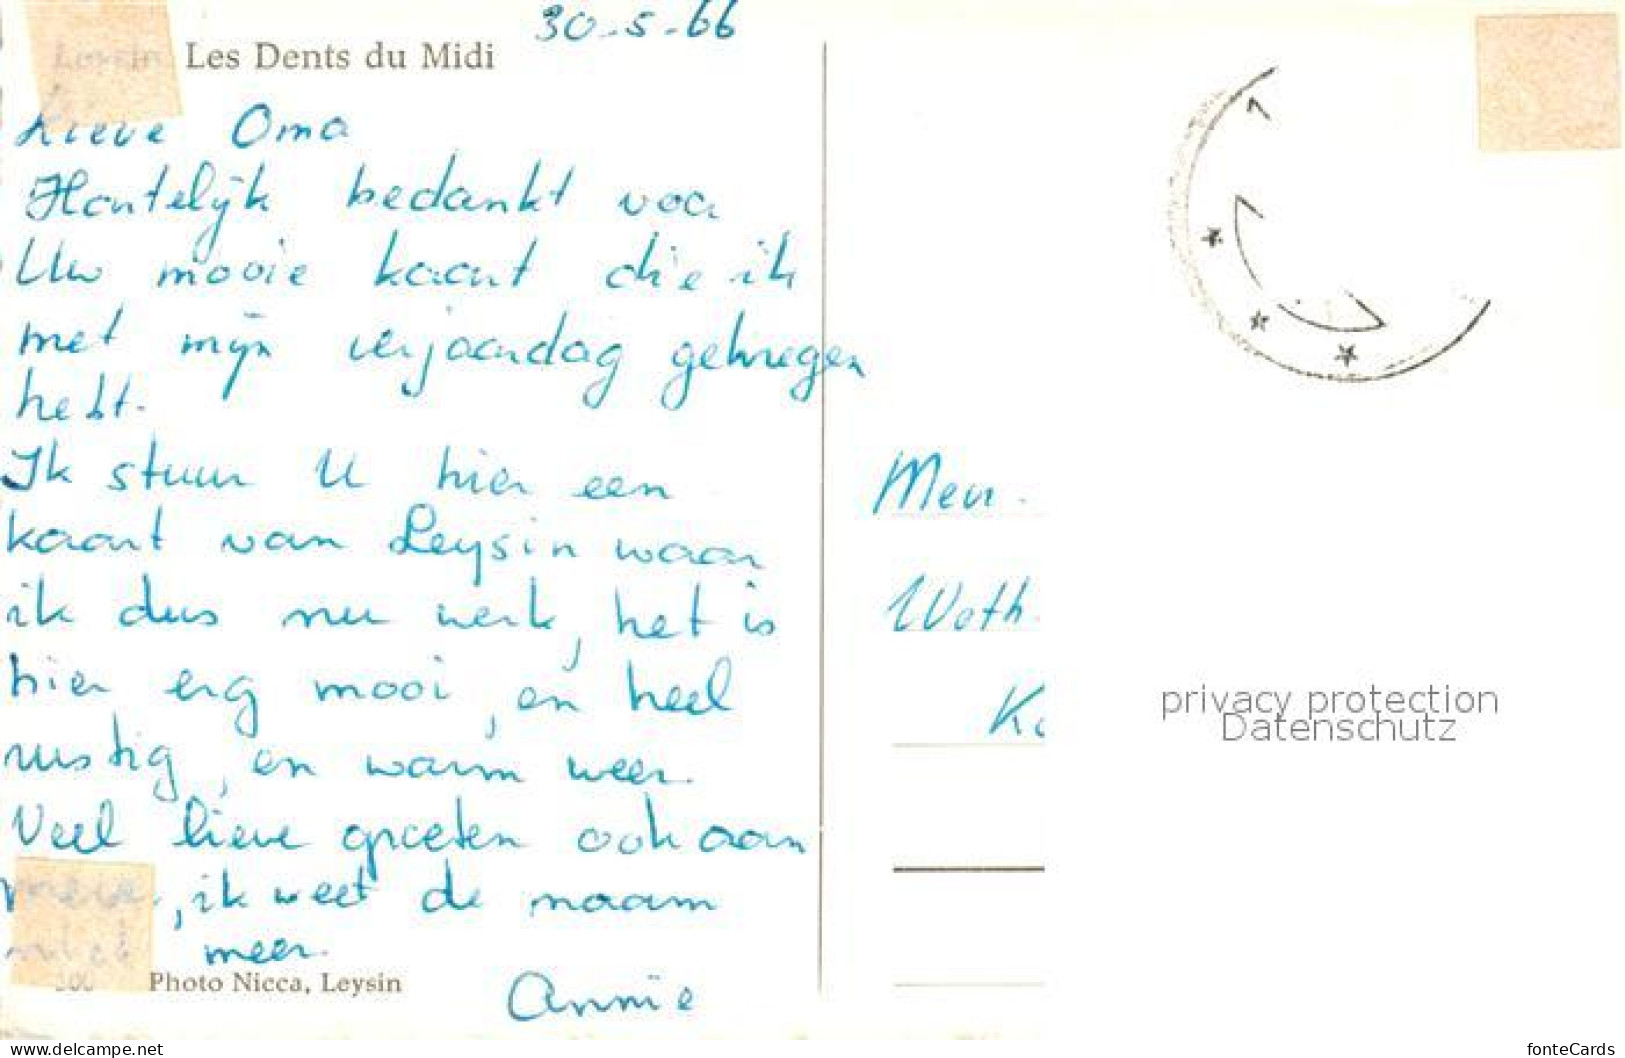 30-5-66
Leysin. Les Dents du Midi
Lieve Oma
Hartelijk bedankt voor
Uw mooie kaart die ik
met mijn verjaardag gekregen
hebt.
Ik stuur U hier een
kaart van Leysin waar
ik dus nu werk, het is
hier erg mooi, en heel
rustig, en warm weer.
Veel lieve groeten ook aan
, ik weet de naam
niet meer.
Annie
Photo Nicca, Leysin
Mevr.
privacy protection
Datenschutz
www.delcampe.net
fonteCards